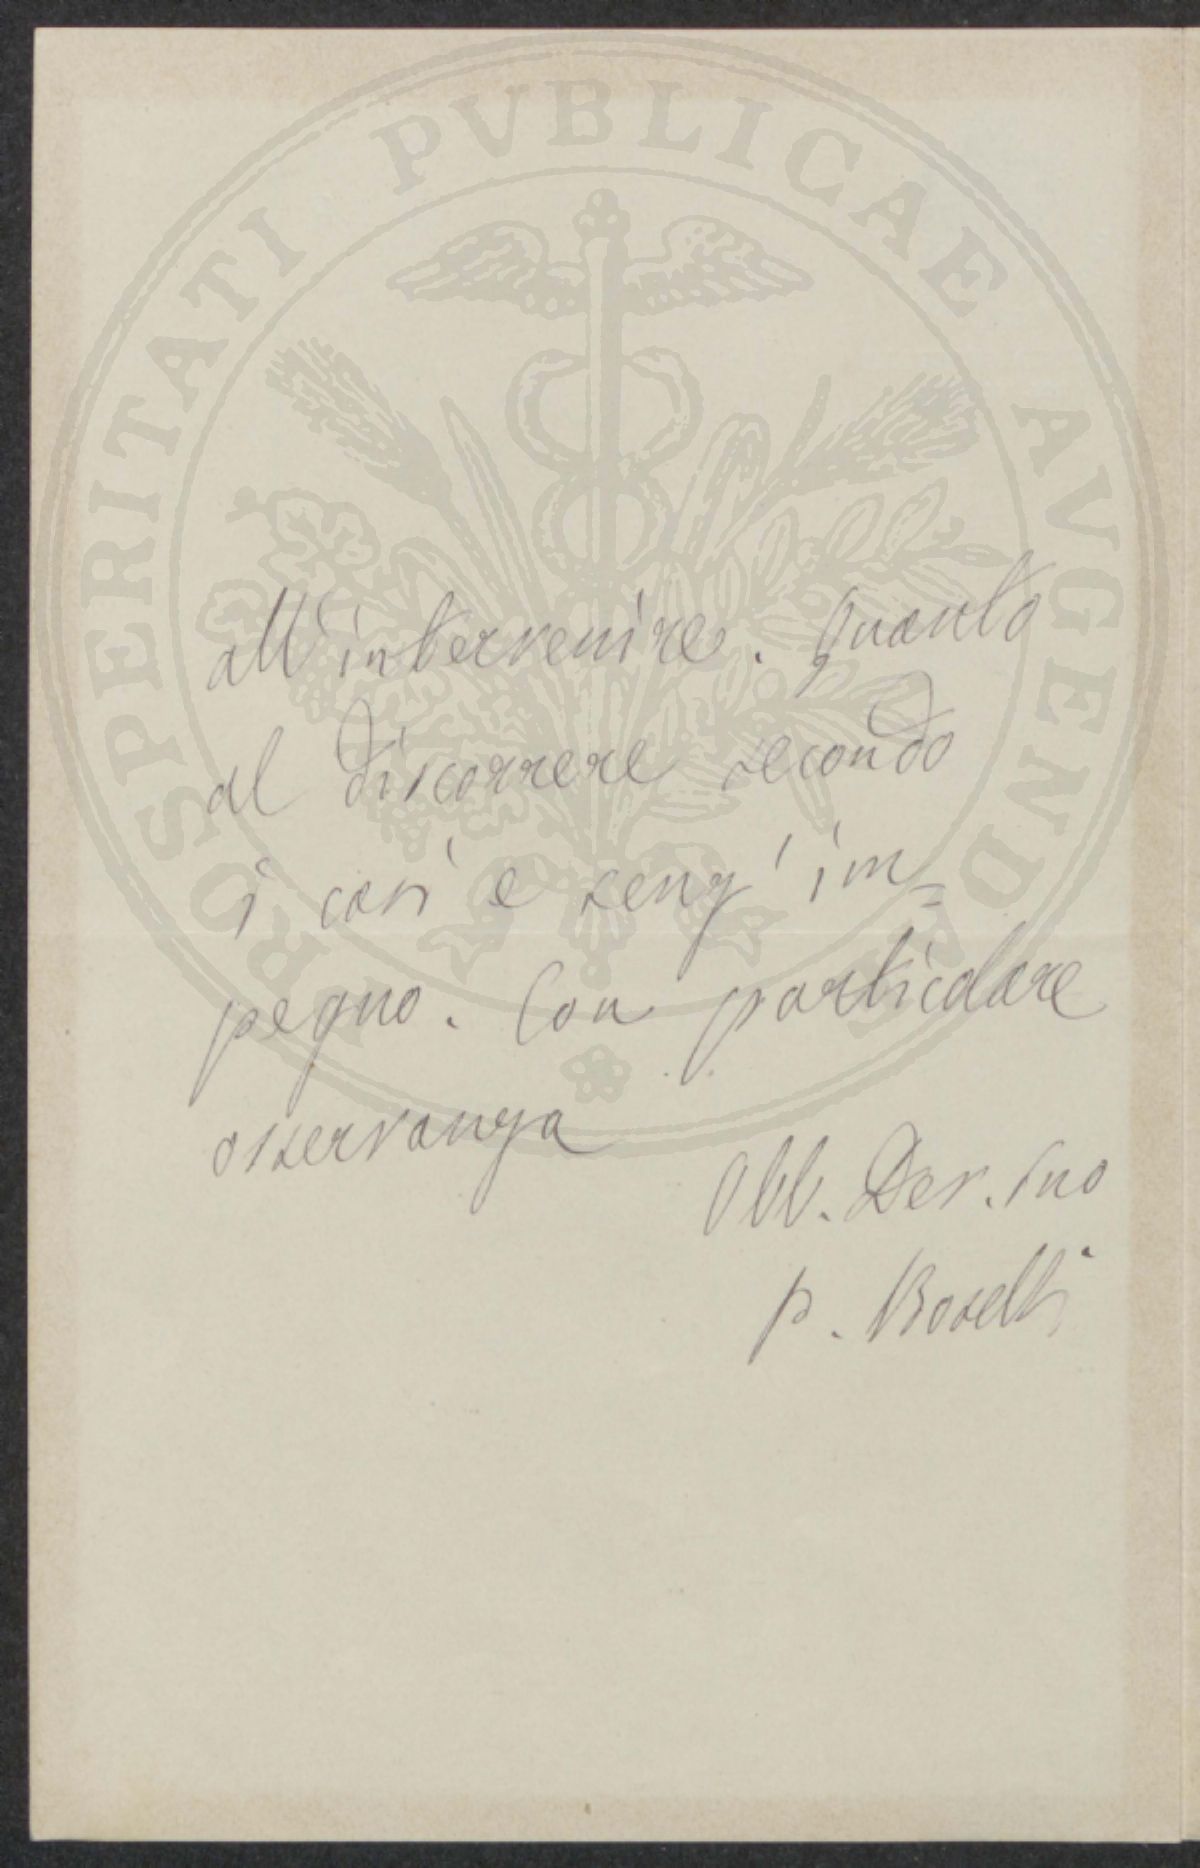 PROSPERITATI PVBLICAE AVGENDAE
all'intervenire. Quanto
al discorrere secondo
i casi e senz' im=
pegno. Con particolare
osservanza
Obb. Dev. suo
P. Boselli